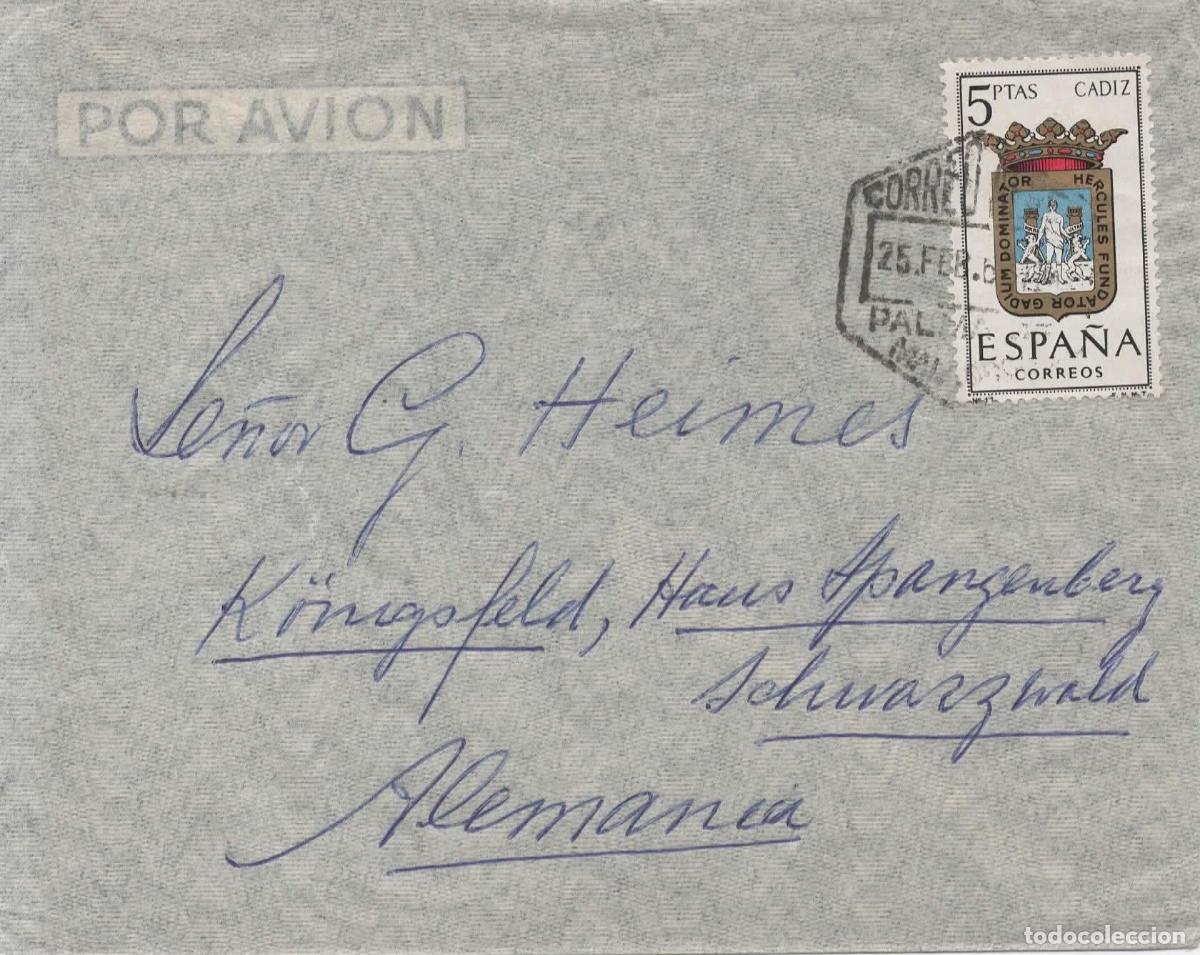 POR AVION
5 PTAS CADIZ
HERCULES FUNDATOR GADIUM DOMINATOR
ESPAÑA
CORREOS
CORREO
25.FEB.6
PALMA
Señor G. Heimes
Königsfeld, Haus Spangenberg
Schwarzwald
Alemania
todocoleccion